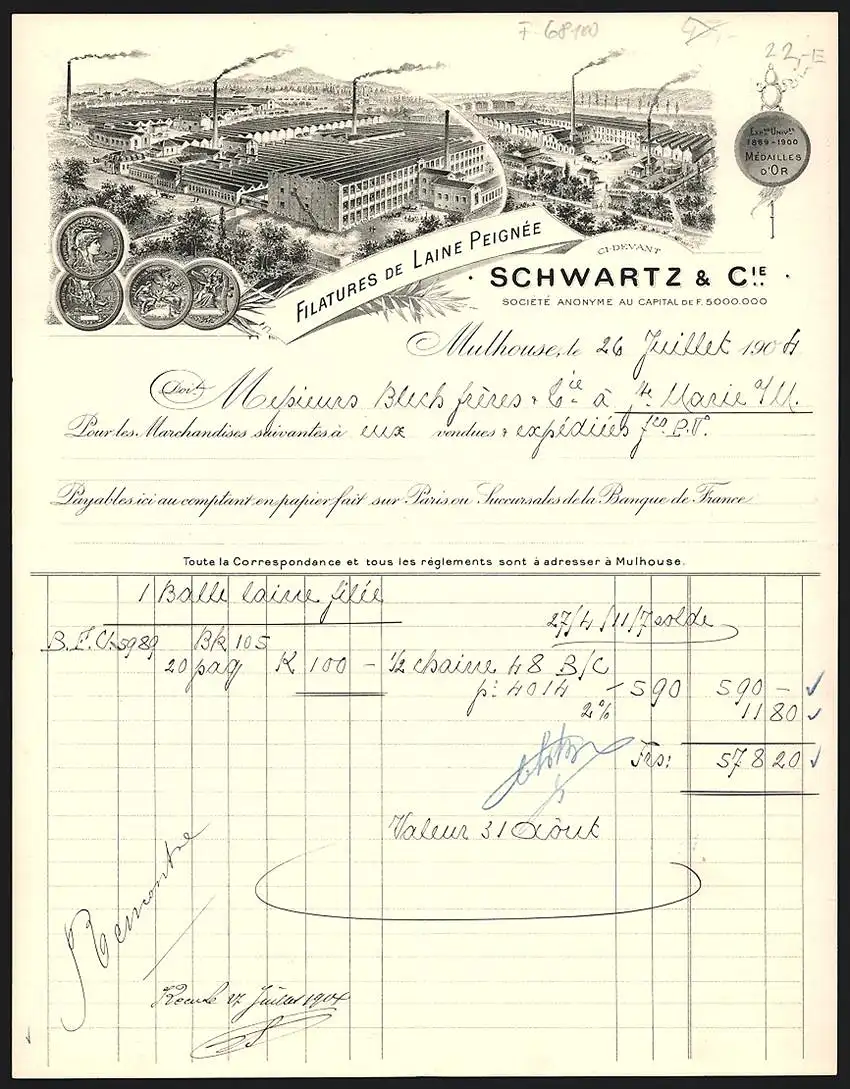 F 68100
22,-E
EXP.ON UNIV.LLES
1889-1900
MÉDAILLES
D'OR
FILATURES DE LAINE PEIGNÉE
CI-DEVANT
· SCHWARTZ & CIE. ·
SOCIÉTÉ ANONYME AU CAPITAL DE F. 5000.000
Mulhouse, le 26 Juillet 1904
Doit Messieurs Blech frères & Cie à Ste Marie a/M.
Pour les Marchandises suivantes à eux vendues & expédiées fco P.V.
Payables ici au comptant en papier fait sur Paris ou Succursales de la Banque de France
Toute la Correspondance et tous les règlements sont à adresser à Mulhouse.
1 Balle laine filée
27/4 11/7 solde
B.F.C. 5989 Bk 105
20 paq K 100 - 1/2 chaine 48 B/C
pi 4014 - 590 590 -
2% 11 80
Frs: 578 20
Valeur 31 Août
Remontre
27 Juillet 1904